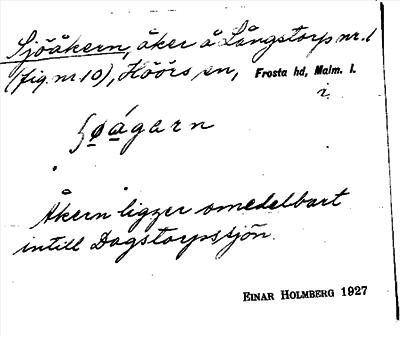 Sjöåkern, åker å Långstorp nr. 1
(fig. nr 10), Höörs sn, Frosta hd, Malm. l.
i.
ʃøágarn
Åkern ligger omedelbart
intill Dagstorpssjön.
EINAR HOLMBERG 1927